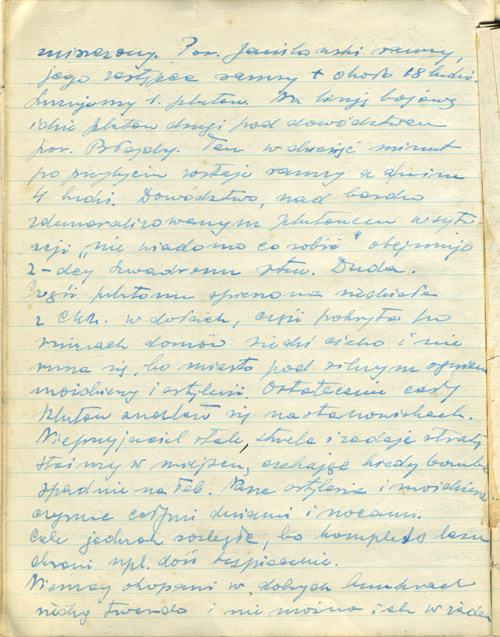 zniszczony. Por. Janiszewski ranny,
jego zastępca ranny + około 18 ludzi.
Luzujemy 1. pluton. Na linję bojową
idzie pluton drugi pod dowództwem
por. Błajdy. Ten w dziesięć minut
po przybyciu zostaje ranny a z nim
4 ludzi. Dowództwo, nad bardzo
zdemoralizowanym plutonem w sytu
acji „nie wiadomo co robić" obejmuje
z-dcy szwadronu Duda.
Część plutonu siedziała
z ckm. w dołach, część pokryta po
domów siedzi cicho i nie
rusza się, bo miasto pod silnym ogniem
moździerzy i artylerii. Ostatecznie cały
pluton znalazł się na stanowiskach.
Nieprzyjaciel stale, strzela i zadaje straty
stoimy w miejscu, czekając kiedy bomba
spadnie na łeb. artyleria i moździerze
czynne całymi dniami i nocami.
Cele jednak rozległe, bo kompleks lasu
chroni npl. dość bezpiecznie.
Niemcy okopani w dobrych bunkrach
siedzą twardo i nie można ich w żaden